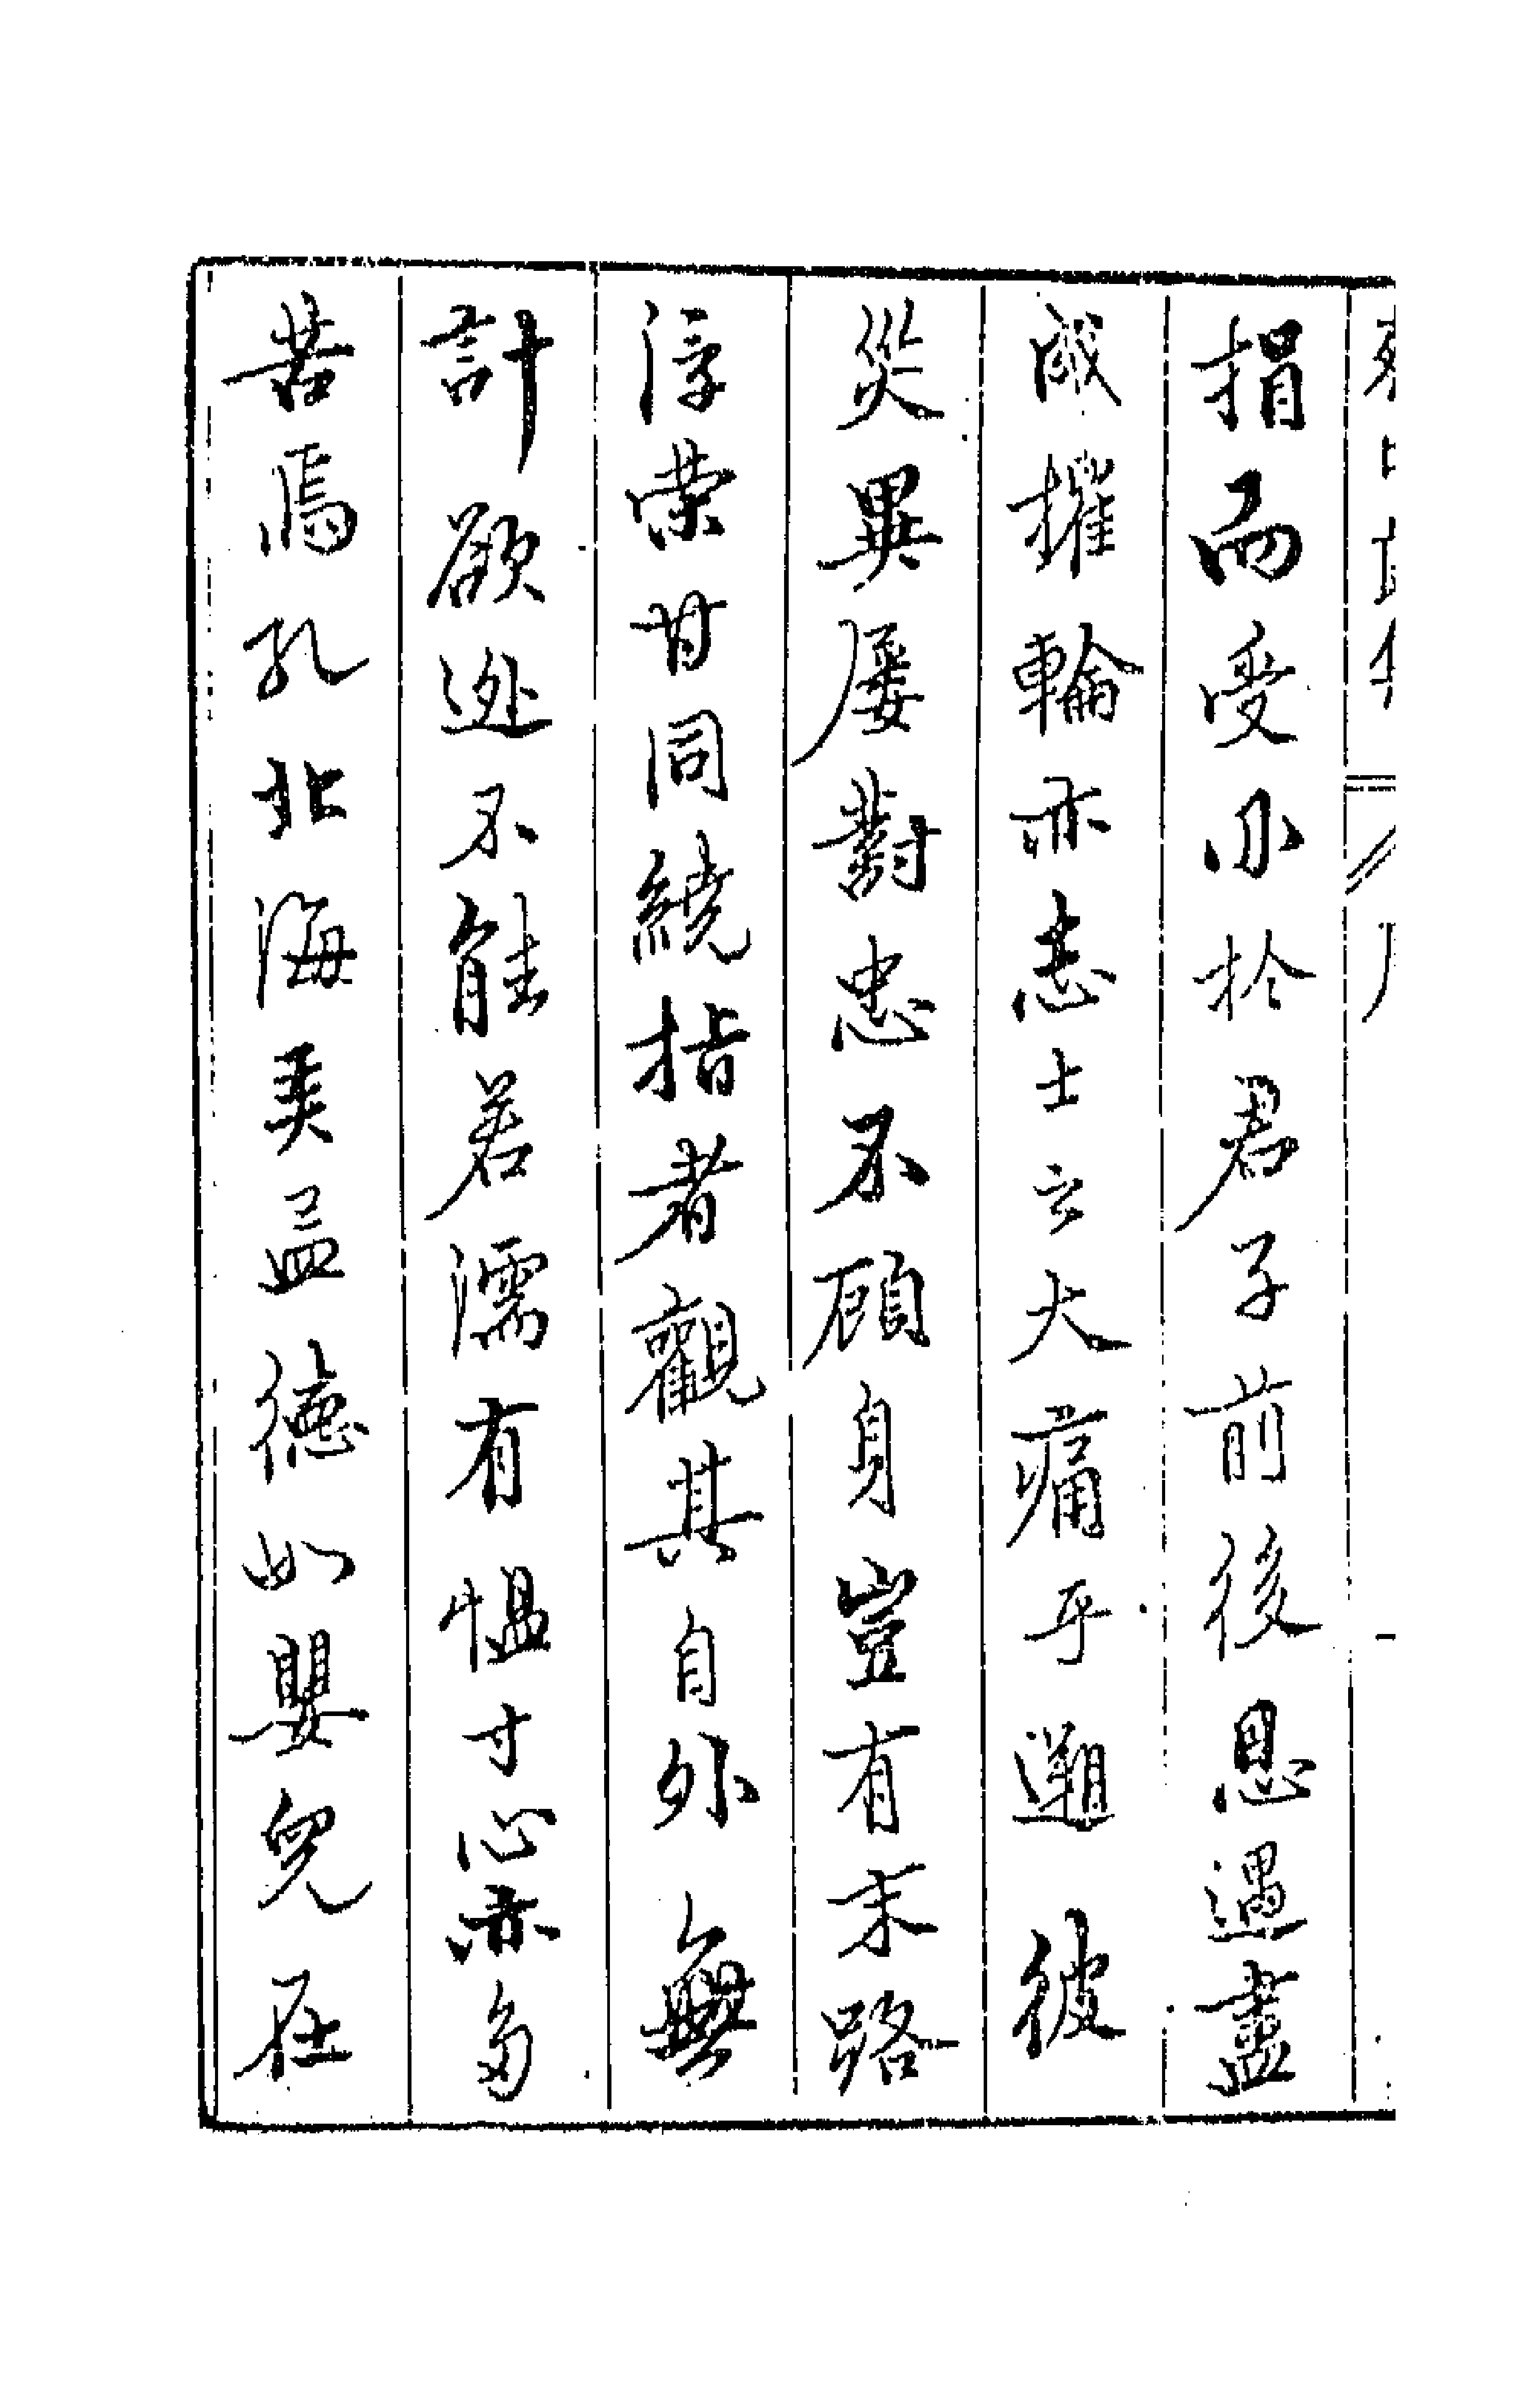 捐而受小於君子前後恩遇盡
成摧輪亦志士云大痛乎遡彼
災異屢對忠不顧身豈有末路
浮榮甘同繞指者觀其自外無
計欲逃不能若濡有慍寸心亦多
苦焉孔北海孟德如嬰兒在